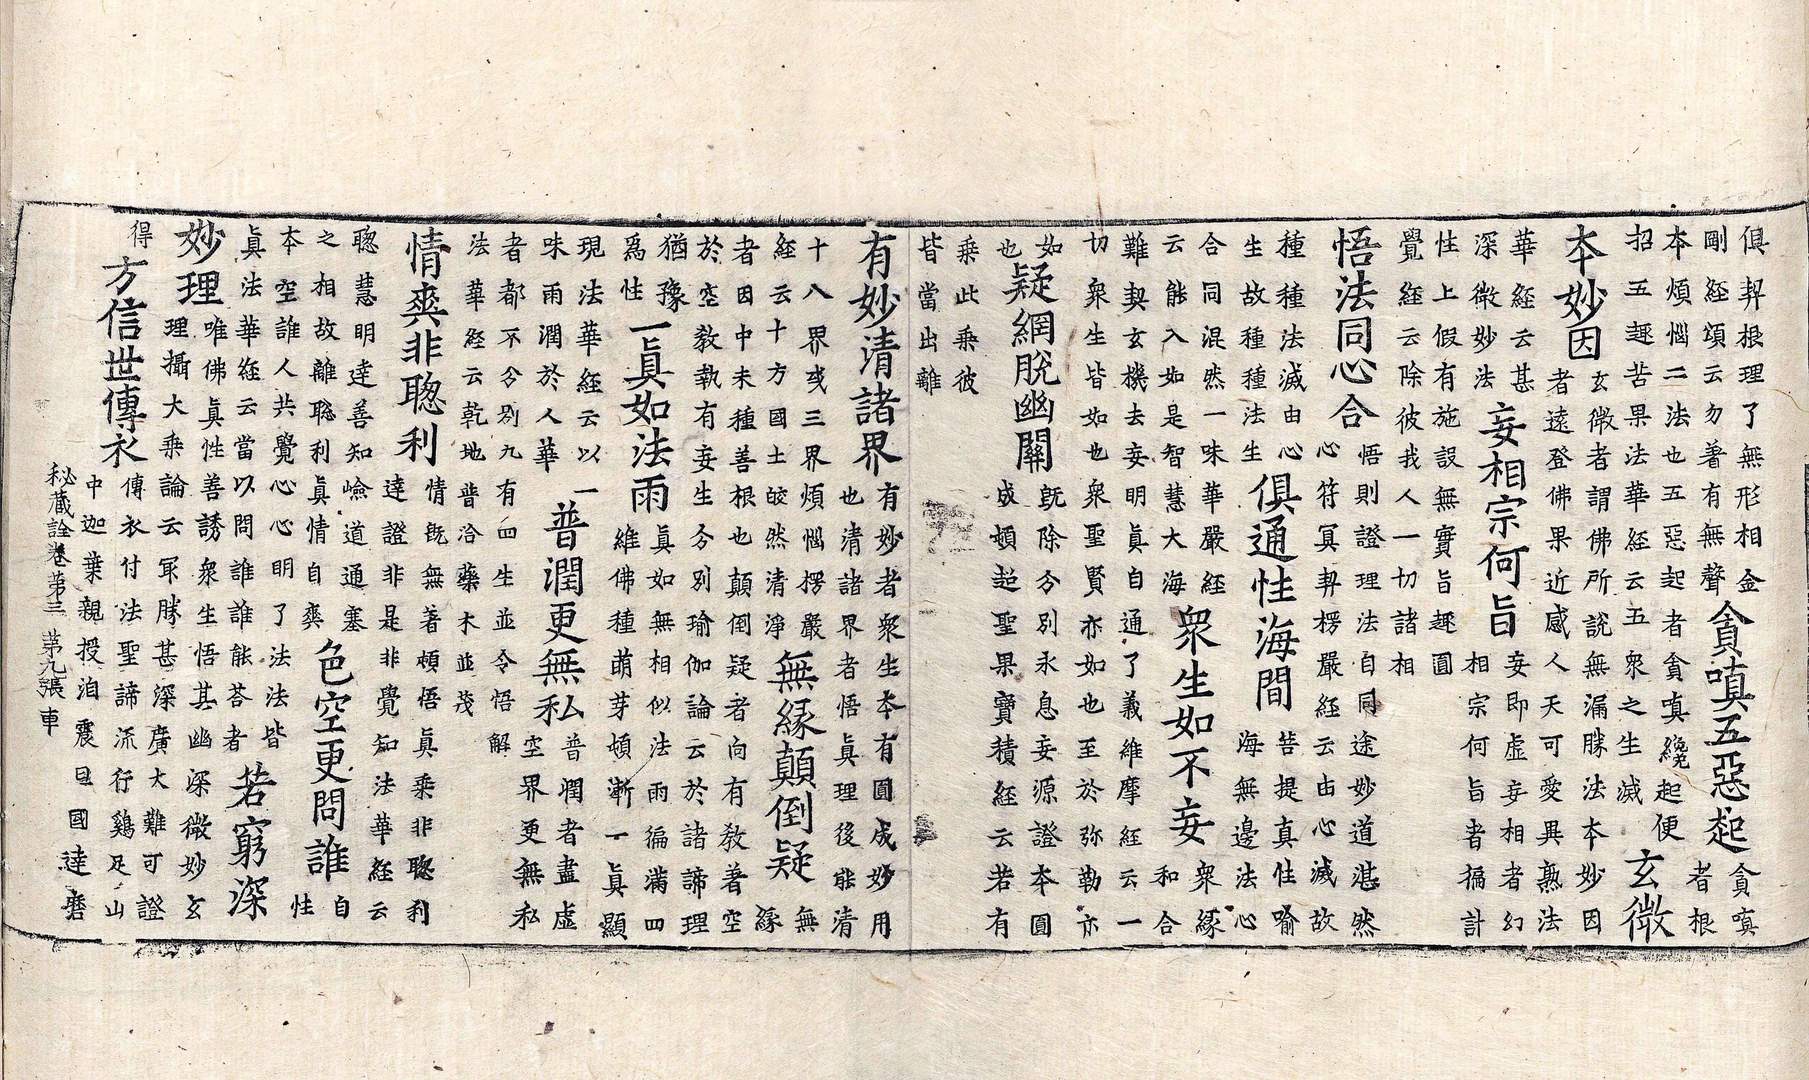 俱契根理了無形相金
剛經頌云勿著有無聲
貪嗔五惡起
貪嗔
者根
本煩惱二法也五惡起者貪嗔纔起便
招五趣苦果法華經云五衆之生滅
玄微
本妙因
玄微者謂佛所説無漏勝法本妙因
者遠登佛果近感人天可愛異熟法
華經云甚
深微妙法
妄相宗何旨
妄即虚妄相者幻
相宗何旨者徧計
性上假有施設無實旨趣圓
覺經云除彼我人一切諸相
悟法同心合
悟則證理法自同途妙道湛然
心符冥契楞嚴經云由心滅故
種種法滅由心
生故種種法生
俱通性海間
菩提真性喻
海無邊法心
合同混然一味華嚴經
云能入如是智慧大海
衆生如不妄
衆緣
和合
難契玄機去妄明眞自通了義維摩經云一
切衆生皆如也衆聖賢亦如也至於弥勒亦
如
也
疑網脫幽關
旣除分別永息妄源證本圓
成頓超聖果寶積經云若有
乘此乘彼
皆當出離
有妙清諸界
有妙者衆生本有圓成妙用
也清諸界者悟眞理後能清
十八界或三界煩惱楞嚴
經云十方國土皎然清淨
無緣顛倒疑
無
緣
者因中未種善根也顛倒疑者向有教著空
於空教執有妄生分別瑜伽論云於諸諦理
猶豫
爲性
一眞如法雨
真如無相似法雨徧滿四
維佛種萌芽頓漸一眞顯
現法華經云以一
味雨潤於人華
普潤更無私
普潤者盡虚
空界更無私
者都不分别九有四生並令悟解
法華經云乾地普洽藥木並茂
情爽非聰利
情旣無著頓悟眞乘非聰利
達證非是非覺知法華經云
聰慧明達善知嶮道通塞
之相故離聡利眞情自爽
色空更問誰
自
性
本空誰人共覺心心明了法法皆
眞法華經云當以問誰誰能荅者
若窮深
妙理
唯佛眞性善誘衆生悟其幽深微妙玄
理攝大乘論云㝡勝甚深廣大難可證
得
方信世傳衣
傳衣付法聖諦流行鷄足山
中迦葉親授洎震旦國達磨
秘藏詮卷第三 第九張 車